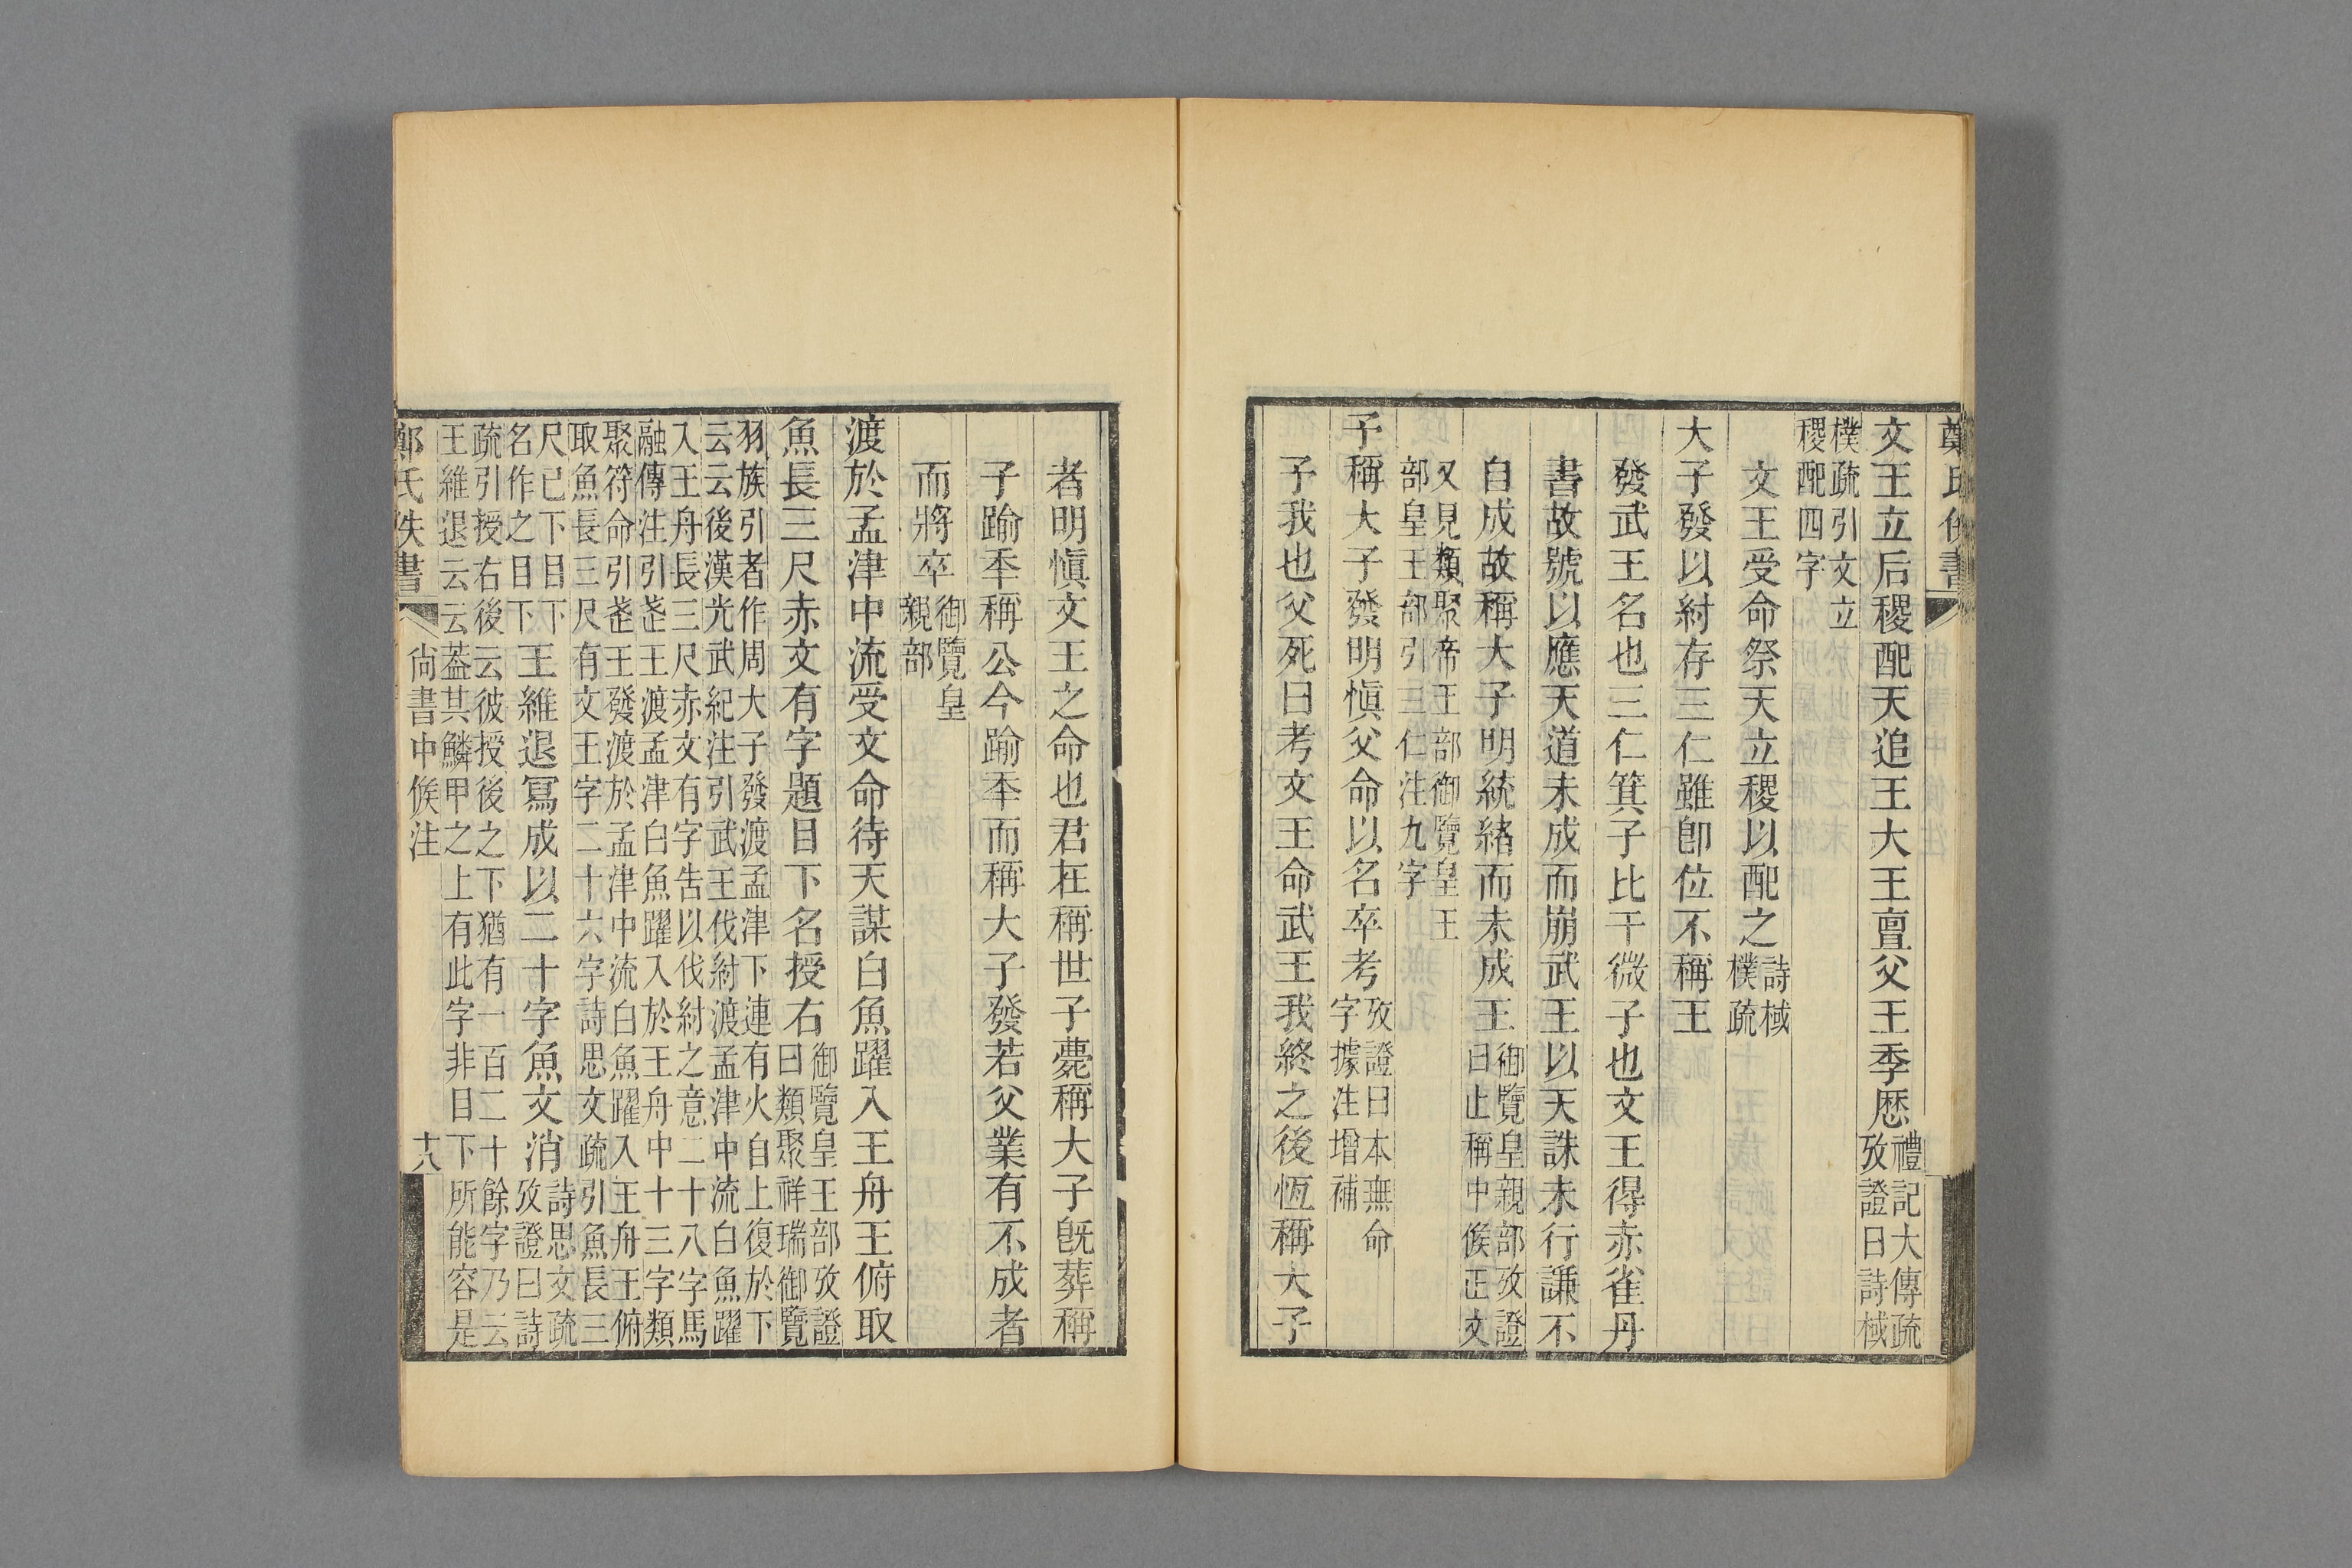 文王立后稷配天追王大王亶父王季歷禮記大傳疏攷證曰詩棫
樸疏引文立稷配四字
文王受命祭天立稷以配之詩棫樸疏
大子發以紂存三仁雖卽位不稱王
發武王名也三仁箕子比干微子也文王得赤雀丹
書故號以應天道未成而崩武王以天誅未行謙不
自成故稱大子明統緒而未成王御覽皇親部攷證曰止稱中候正文
又見類聚帝王部御覽皇王部皇王部引三仁注九字
子稱大子發明愼父命以名卒考攷證曰本無命字據注增補
予我也父死曰考文王命武王我終之後恆稱大子
者明愼文王之命也君在稱世子薨稱大子旣葬稱
子踰年稱公今踰年而稱大子發若父業有不成者
而將卒御覽皇親部
渡於孟津中流受文命待天謀白魚躍入王舟王俯取
魚長三尺赤文有字題目下名授右御覽皇王部攷證曰類聚祥瑞御覽
羽族引者作周大子發渡孟津下連有火自上復於下云云後漢光武紀注引武王伐紂渡孟津中流白魚躍
入王舟長三尺赤文有字告以伐紂之意二十八字馬融傳注引發王渡孟津白魚躍入於王舟中十三字類
聚符命引發王發渡於孟津中流白魚躍入王舟王俯取魚長三尺有文王字二十六字詩思文疏引魚長三
尺已下目下名作之目下王維退寫成以二十字魚文消詩思文疏攷證曰詩
疏引授右後云彼授後之下猶有一百二十餘字乃云王維退云云葢其鱗甲之上有此字非目下所能容是
鄭氏佚書
尙書中候注
十八